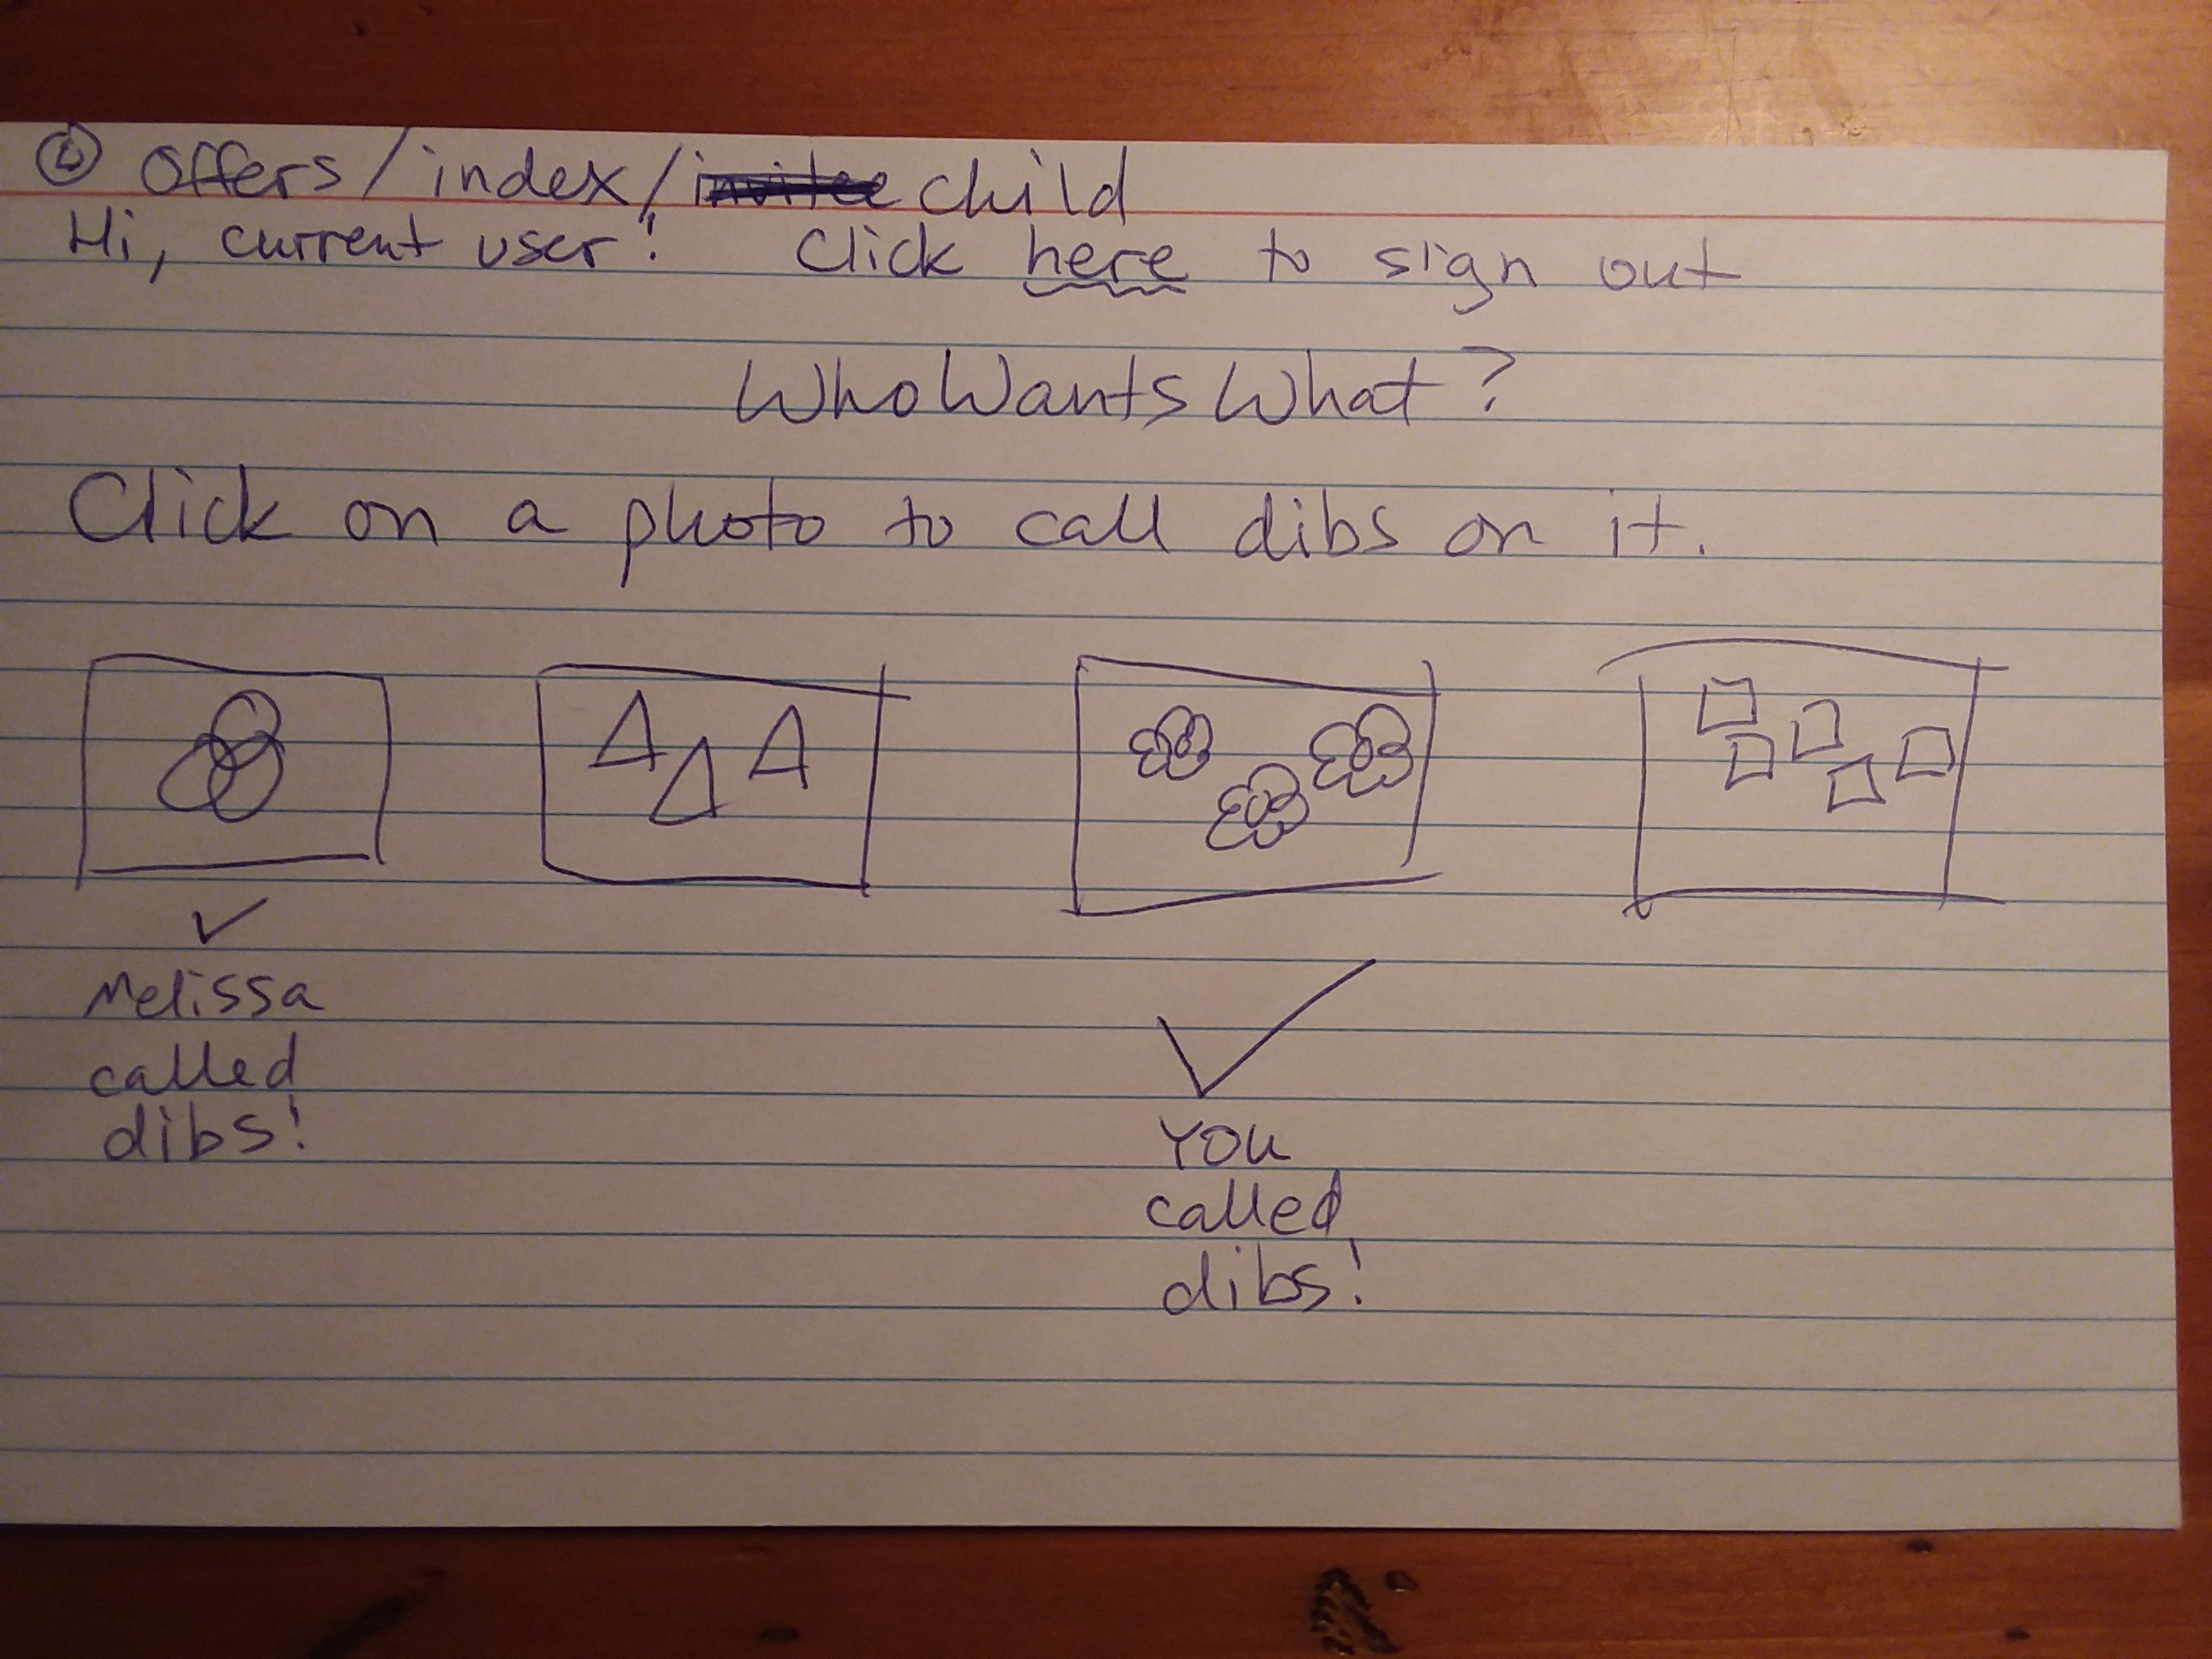 ⑥ Offers/index/child
Hi, current user! Click here to sign out
WhoWantsWhat?
Click on a photo to call dibs on it.
Melissa
called
dibs!
You
called
dibs!